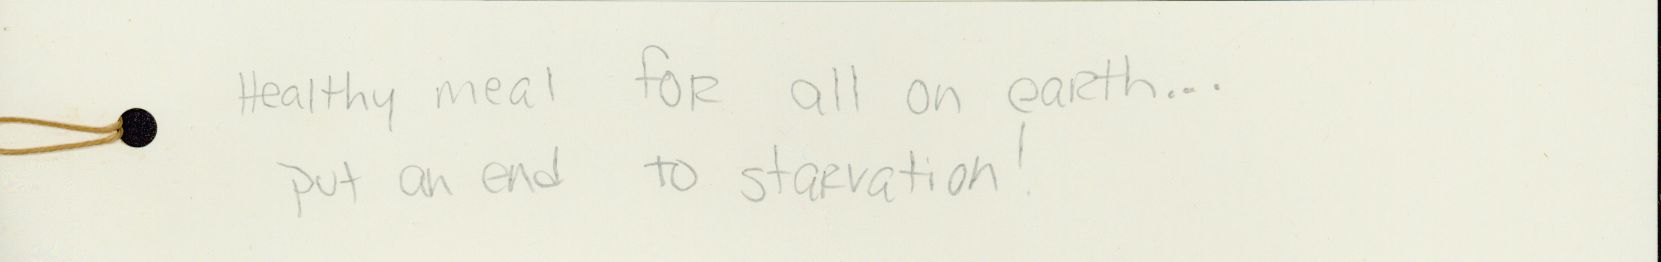 Healthy meal for all on earth...
put an end to starvation!